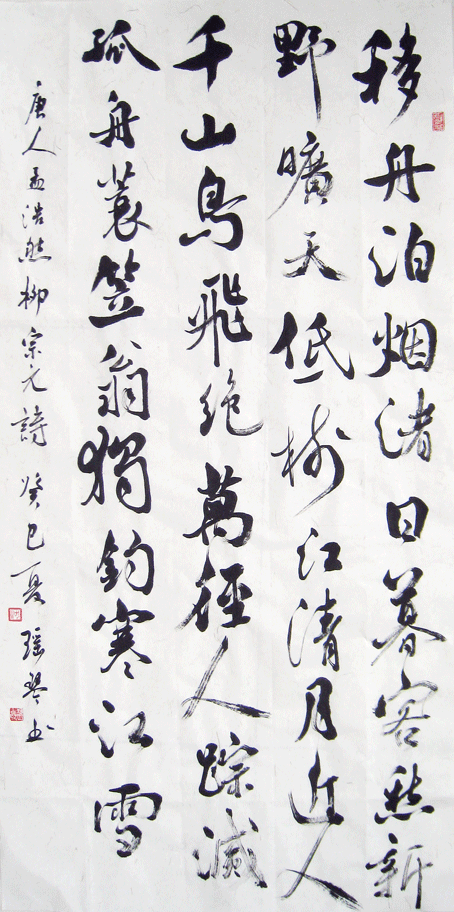 移舟泊烟渚日暮客愁新
野曠天低樹江清月近人
千山鳥飛绝萬徑人踪滅
孤舟蓑笠翁獨釣寒江雪
唐人孟浩然柳宗元詩癸巳夏瑶琴书